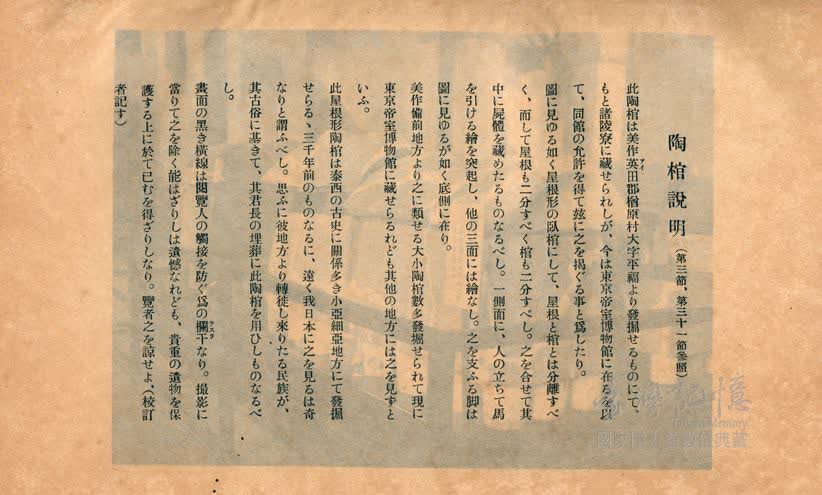 陶棺說明（第三節，第三十一節參照）
此陶棺は美作英田郡楢原村大字平福より發掘せるものにて、
もと諸陵寮に藏せられしが、今は東京帝室博物館に在るを以
て、同館の允許を得て玆に之を揭ぐる事と爲したり。
圖に見ゆる如く屋根形の臥棺にして、屋根と棺とは分離すべ
く、而して屋根も二分すべく棺も二分すべし。之を合せて其
中に屍體を藏めたるものなるべし。一側面に、人の立ちて馬
を引ける繪を突起し、他の三面には繪なし。之を支ふる脚は
圖に見ゆるが如く底側に在り。
美作備前地方より之に類せる大小陶棺數多發堀せられて現に
東京帝室博物館に藏せらるれども其他の地方には之を見ずと
いふ。
此屋根形陶棺は泰西の古史に關係多き小亞細亞地方にて發掘
せらるゝ三千年前のものなるに、遠く我日本に之を見るは奇
なりと謂ふべし。思ふに彼地方より轉徙し來りたる民族が、
其古俗に基きて、其君長の埋葬に此陶棺を用ひしものなるべ
し。
畫面の黑き橫線は閱覽人の觸接を防ぐ爲の欄干なり。撮影に
當りて之を除く能はざりしは遺憾なれども、貴重の遺物を保
護する上に於て已むを得ざりしなり。覽者之を諒せよ、（校訂
者記す）
臺灣記憶
Taiwan Memory
國家圖書館數位典藏